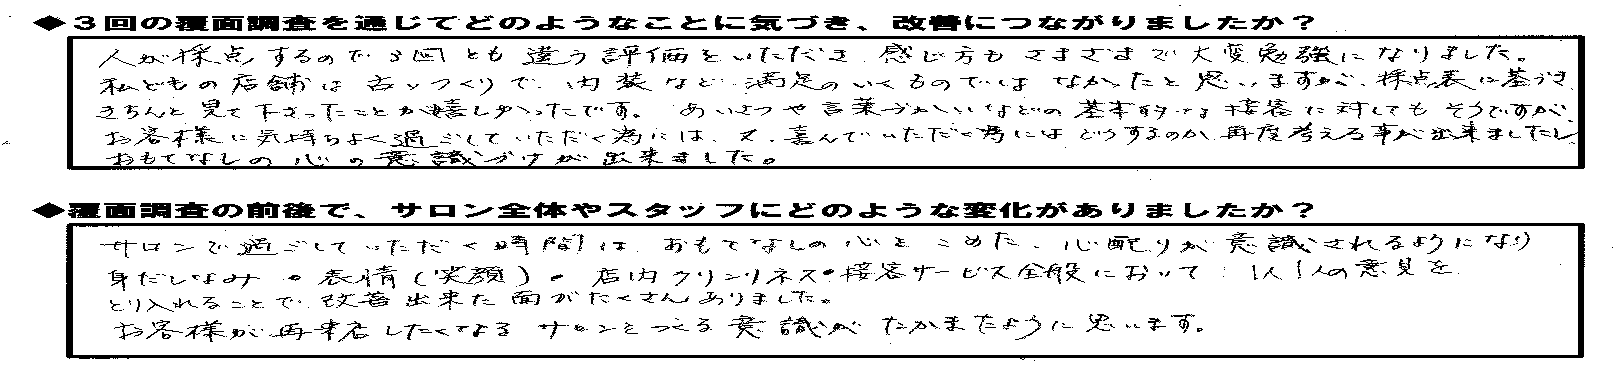 ◆３回の覆面調査を通じてどのようなことに気づき、改善につながりましたか？
人が採点するので３回とも違う評価をいただき 感じ方もさまざまで大変勉強になりました。
私どもの店舗は古いつくりで、内装など満足のいくものではなかったと思いますが、採点表に基づき
きちんと見て下さったことが嬉しかったです。 あいさつや言葉づかいなどの基本的な接客に対してもそうですが、
お客様に気持ちよく過ごしていただく為には、又、喜んでいただく為にはどうするのか、再度考える事が出来ましたし
おもてなしの心の意識づけが出来ました。
◆覆面調査の前後で、サロン全体やスタッフにどのような変化がありましたか？
サロンで過ごしていただく時間は、おもてなしの心をこめた、心配りが意識されるようになり
身だしなみ・表情（笑顔）・店内クリンリネス・接客サービス全般において、1人1人の意見を
とり入れることで、改善出来た面がたくさんありました。
お客様が再来店したくなるサロンをつくる意識がたかまったように思います。